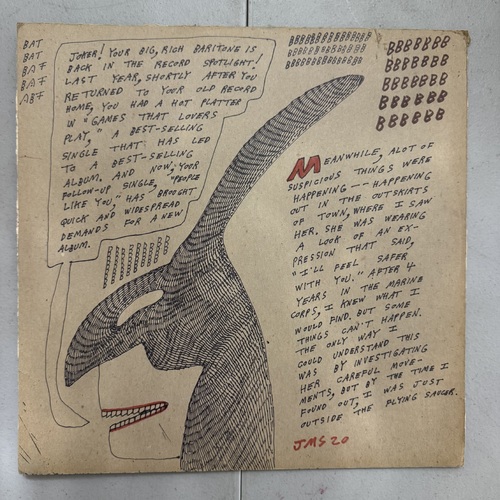 BAT
BAT
BAT
BAT
ABT
JOKER! YOUR BIG, RICH BARITONE IS
BACK IN THE RECORD SPOTLIGHT!
LAST YEAR, SHORTLY AFTER YOU
RETURNED TO YOUR OLD RECORD
HOME, YOU HAD A HOT PLATTER
IN "GAMES THAT LOVERS
PLAY," A BEST-SELLING
SINGLE THAT HAS LED
TO A BEST-SELLING
ALBUM. AND NOW, YOUR
FOLLOW-UP SINGLE, "PEOPLE
LIKE YOU," HAS BROUGHT
QUICK AND WIDESPREAD
DEMANDS FOR A NEW
ALBUM.
MEANWHILE, ALOT OF
SUSPICIOUS THINGS WERE
HAPPENING -- HAPPENING
OUT IN THE OUTSKIRTS
OF TOWN, WHERE I SAW
HER. SHE WAS WEARING
A LOOK OF AN EX-
PRESSION THAT SAID,
"I'LL FEEL SAFER
WITH YOU." AFTER 4
YEARS IN THE MARINE
CORPS, I KNEW WHAT I
WOULD FIND. BUT SOME
THINGS CAN'T HAPPEN.
THE ONLY WAY I
COULD UNDERSTAND THIS
WAS BY INVESTIGATING
HER CAREFUL MOVE-
MENTS, BUT BY THE TIME I
FOUND OUT, I WAS JUST
OUTSIDE THE FLYING SAUCER.
JMS 20